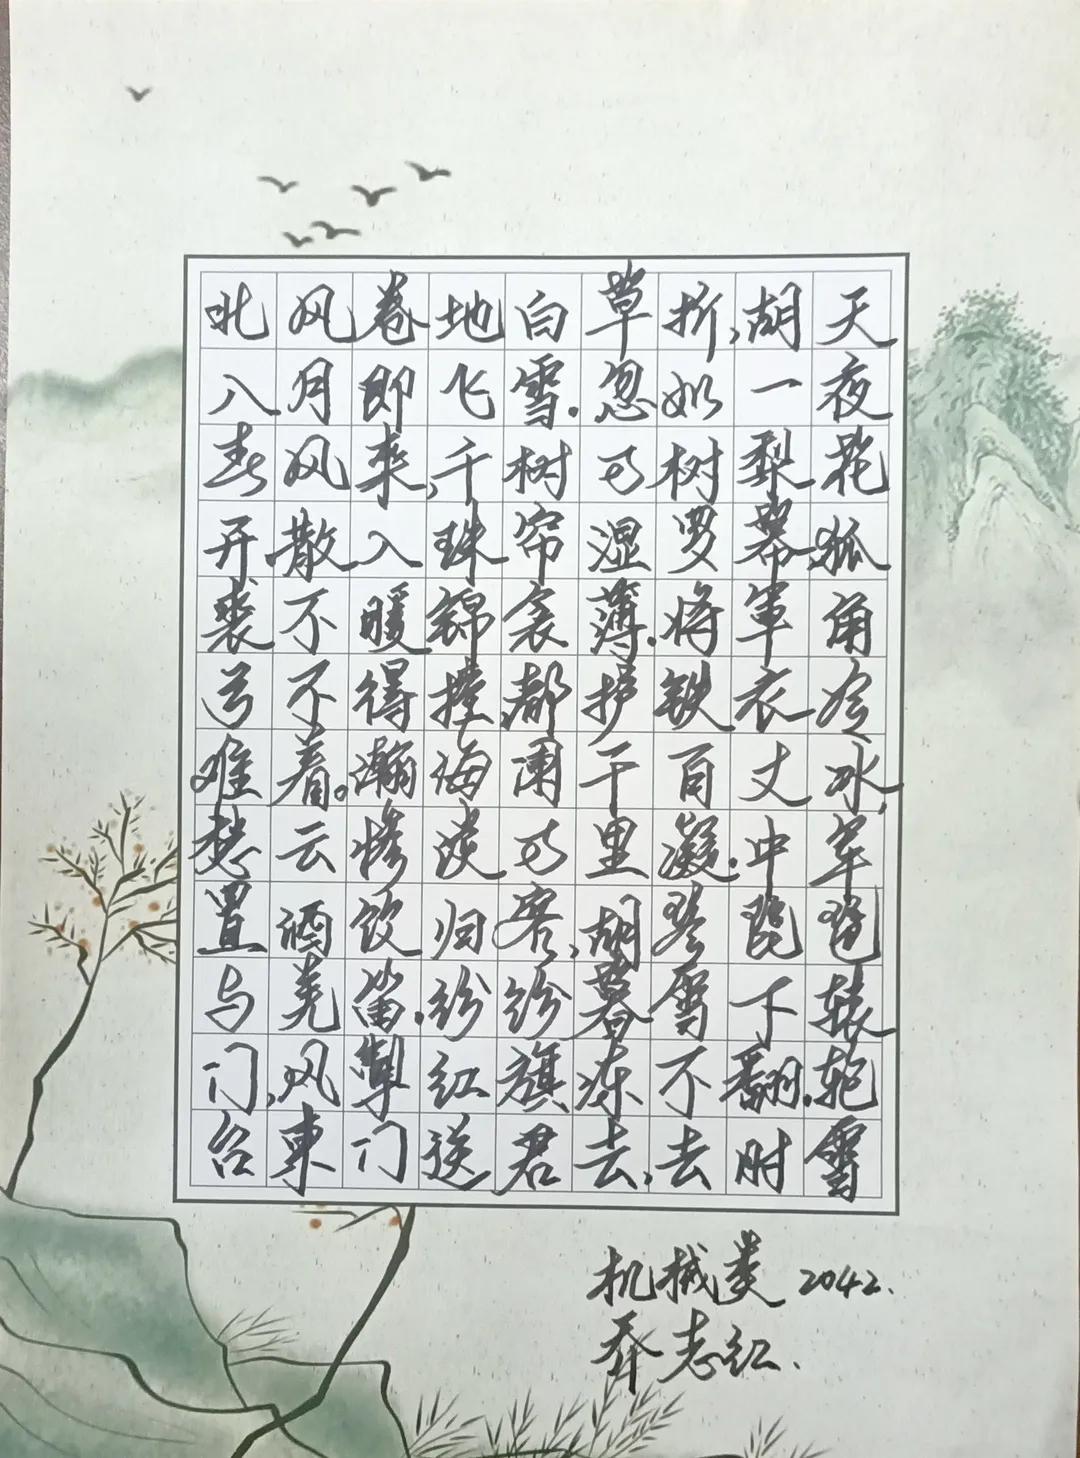 北风卷地白草折,胡天
八月即飞雪.忽如一夜
春风来,千树万树梨花
开.散入珠帘湿罗幕,狐
裘不暖锦衾薄.将军角
弓不得控,都护铁衣冷
难着。瀚海阑干百丈冰,
愁云惨淡万里凝.中军
置酒饮归客,胡琴琵琶
与羌笛.纷纷暮雪下辕
门,风掣红旗冻不翻.轮
台东门送君去,去时雪
机械类 2042.
乔志红.